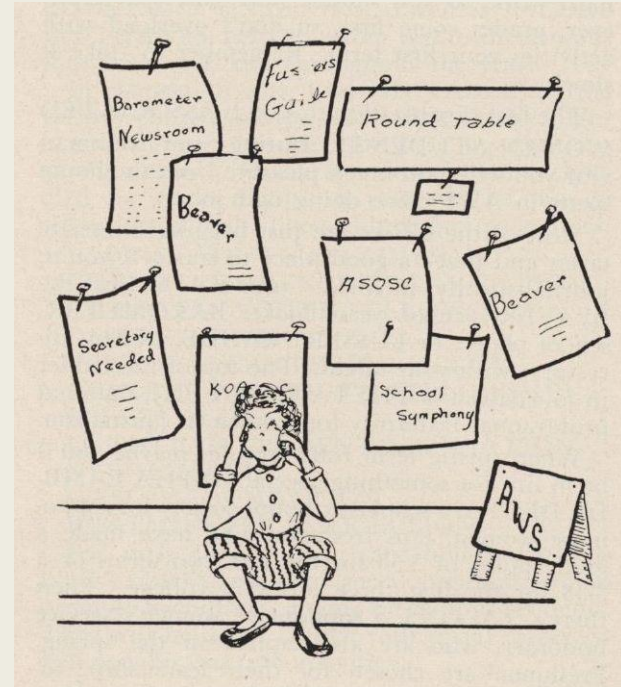 Barometer
Newsroom
Fussers
Guide
Round Table
Beaver
ASOSC
Beaver
Secretary
Needed
KOAC
School
Symphony
AWS